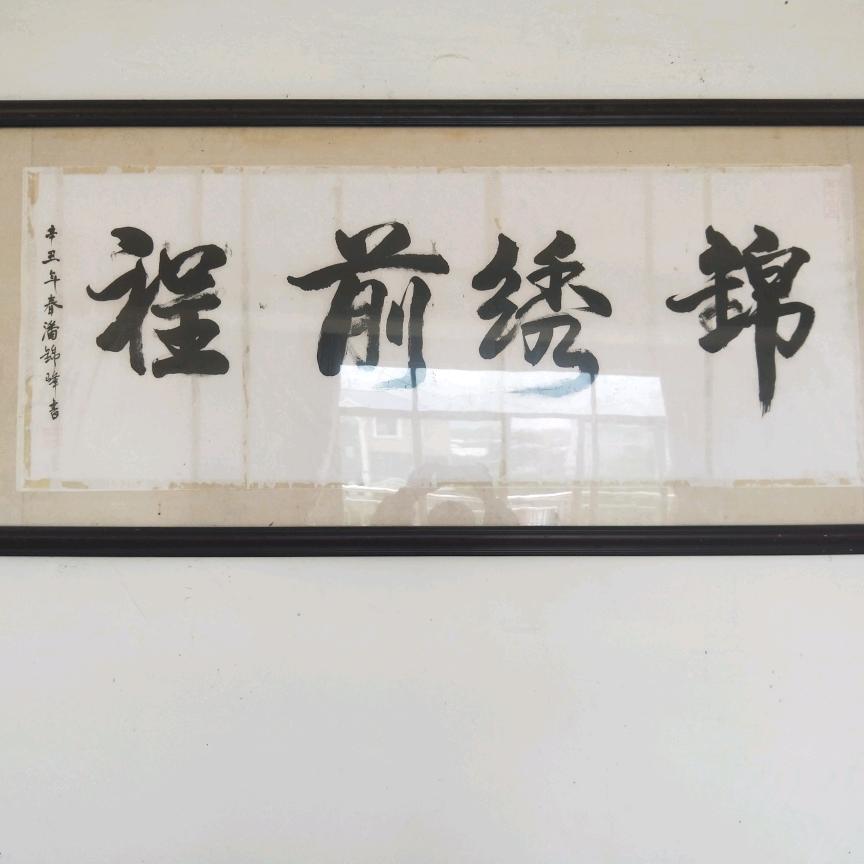 錦绣前程
辛丑年春潘錦峰書